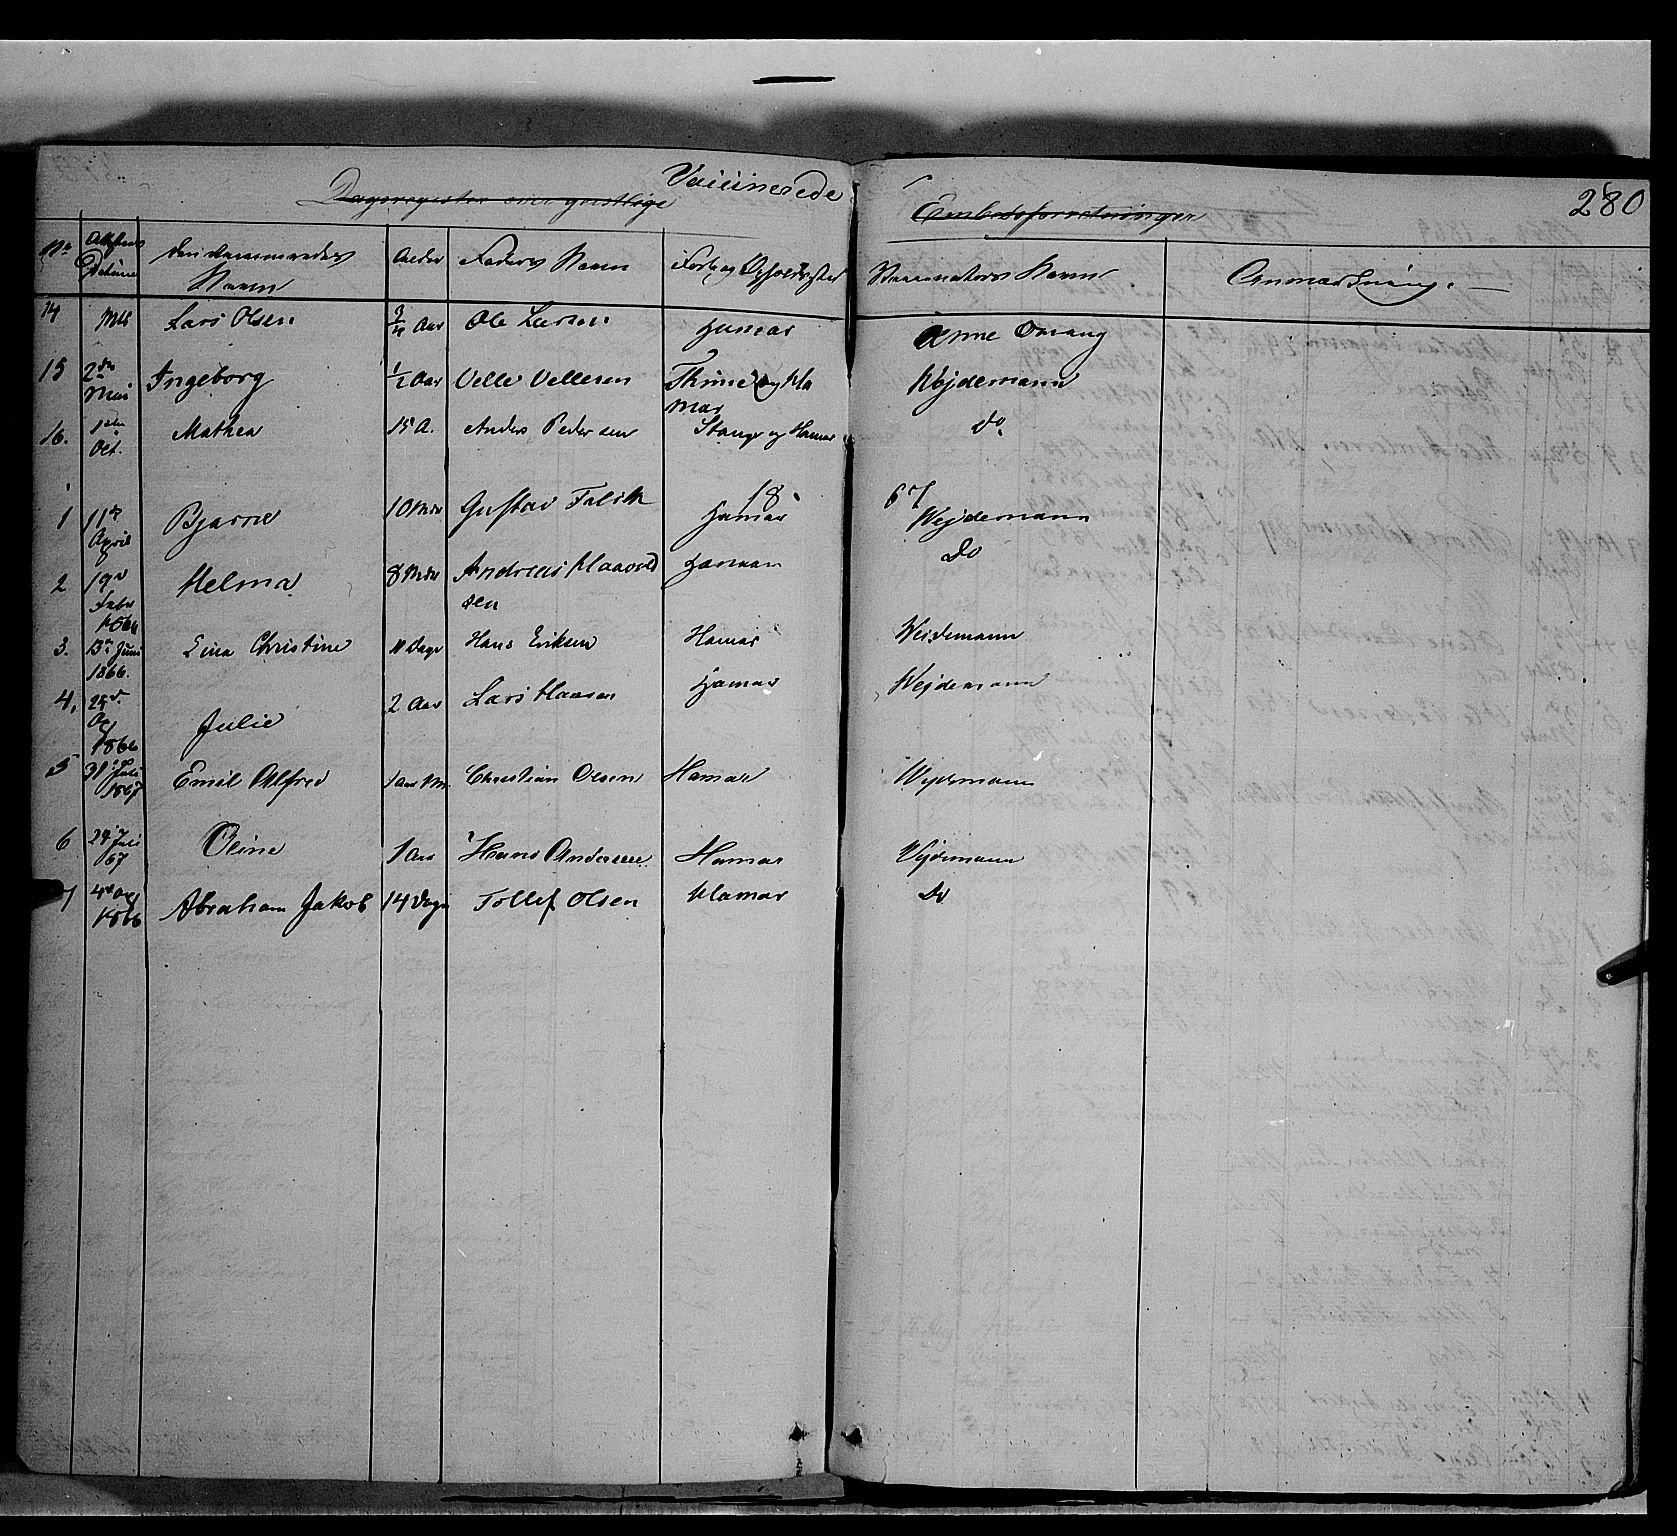 Vaccinerede 280
Dagsregister over geistlige Embedsforretninger
No Attestens Datum Den Vaccineredes Navn Alder Faders Navn Fødeog Opholdssted Vaccinators Navn Anmærkning.
14 Lars Olsen Aar Ole Larsen Hamar Anne Omang
15 2den Mai Ingeborg 1/2 Aar Velle Vellesen og Ha
mar Wejdemann
16. 1ste Oct. Mathea 15 A. Anders Pedersen Stange og Hamar do
1867
1 11te April Bjarne 10 Mdr Gustav Hamar Wejdemann
2 19d Helma 8 Mdr Andreas Haavold
sen Hamar Do
3. 13de Juni 1866. Lina Christine 11 Dage Hans Eriksen Hamar Weidemann
4. 25de 1866 Julie 2 Aar Lars Hansen Hamar Wejdemann
5 31 Juli 1867 Emil Alfred 1 Aar Christian Olsen Hamar Wejdemann
6 24 Juli 67 Oline 1 Aar Hans Andersen Hamar Vejdemann
7 1866 Abraham Jakob 14 Dage Tollef Olsen Hamar Do